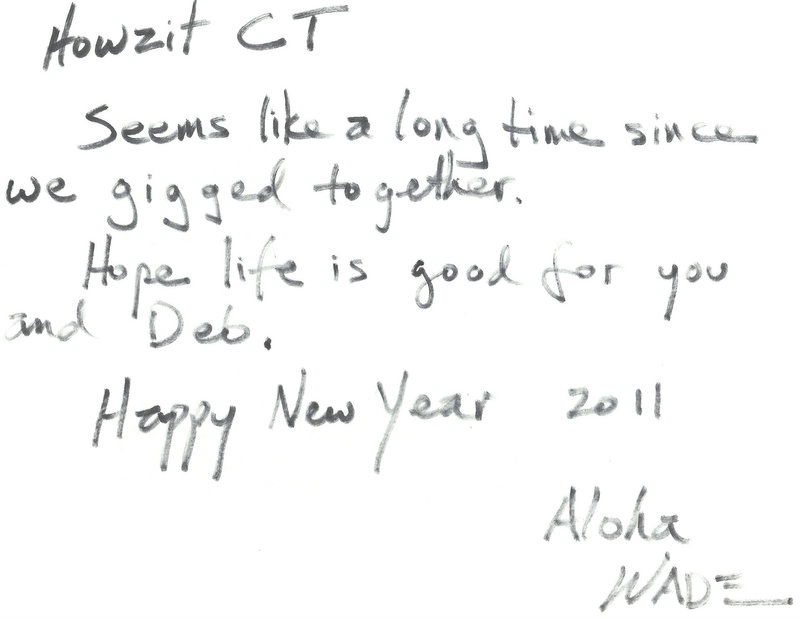 Howzit CT
Seems like a long time since
we gigged together.
Hope life is good for you
and Deb.
Happy New Year 2011
Aloha
WADE